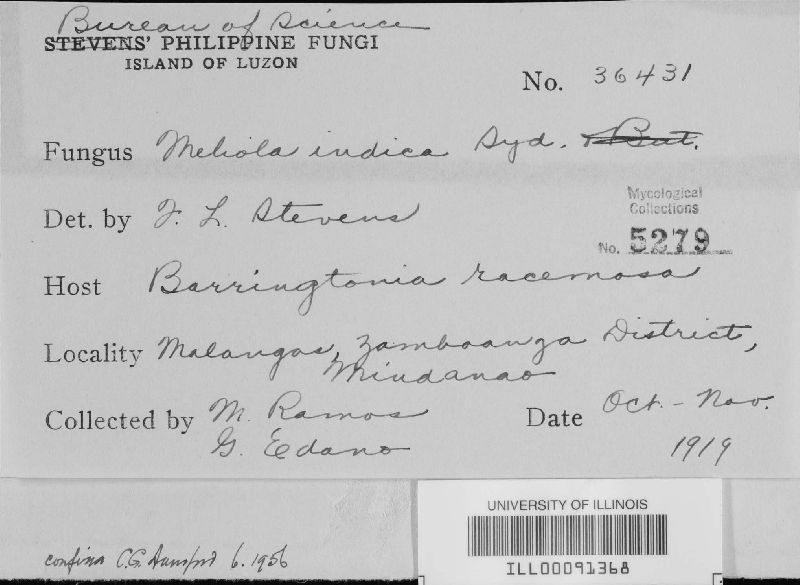 Bureau of Science
STEVENS' PHILIPPINE FUNGI
ISLAND OF LUZON
No. 36431
Fungus Meliola indica Syd. & But.
Det. by F. L. Stevens
Mycological
Collections
No. 5279
Host Barringtonia racemosa
Locality Malangas, Zamboanga District,
Mindanao
Collected by M. Ramos
G. Edano
Date Oct. - Nov.
1919
UNIVERSITY OF ILLINOIS
ILL00091368
confirm C.G. Hansford 6.1956